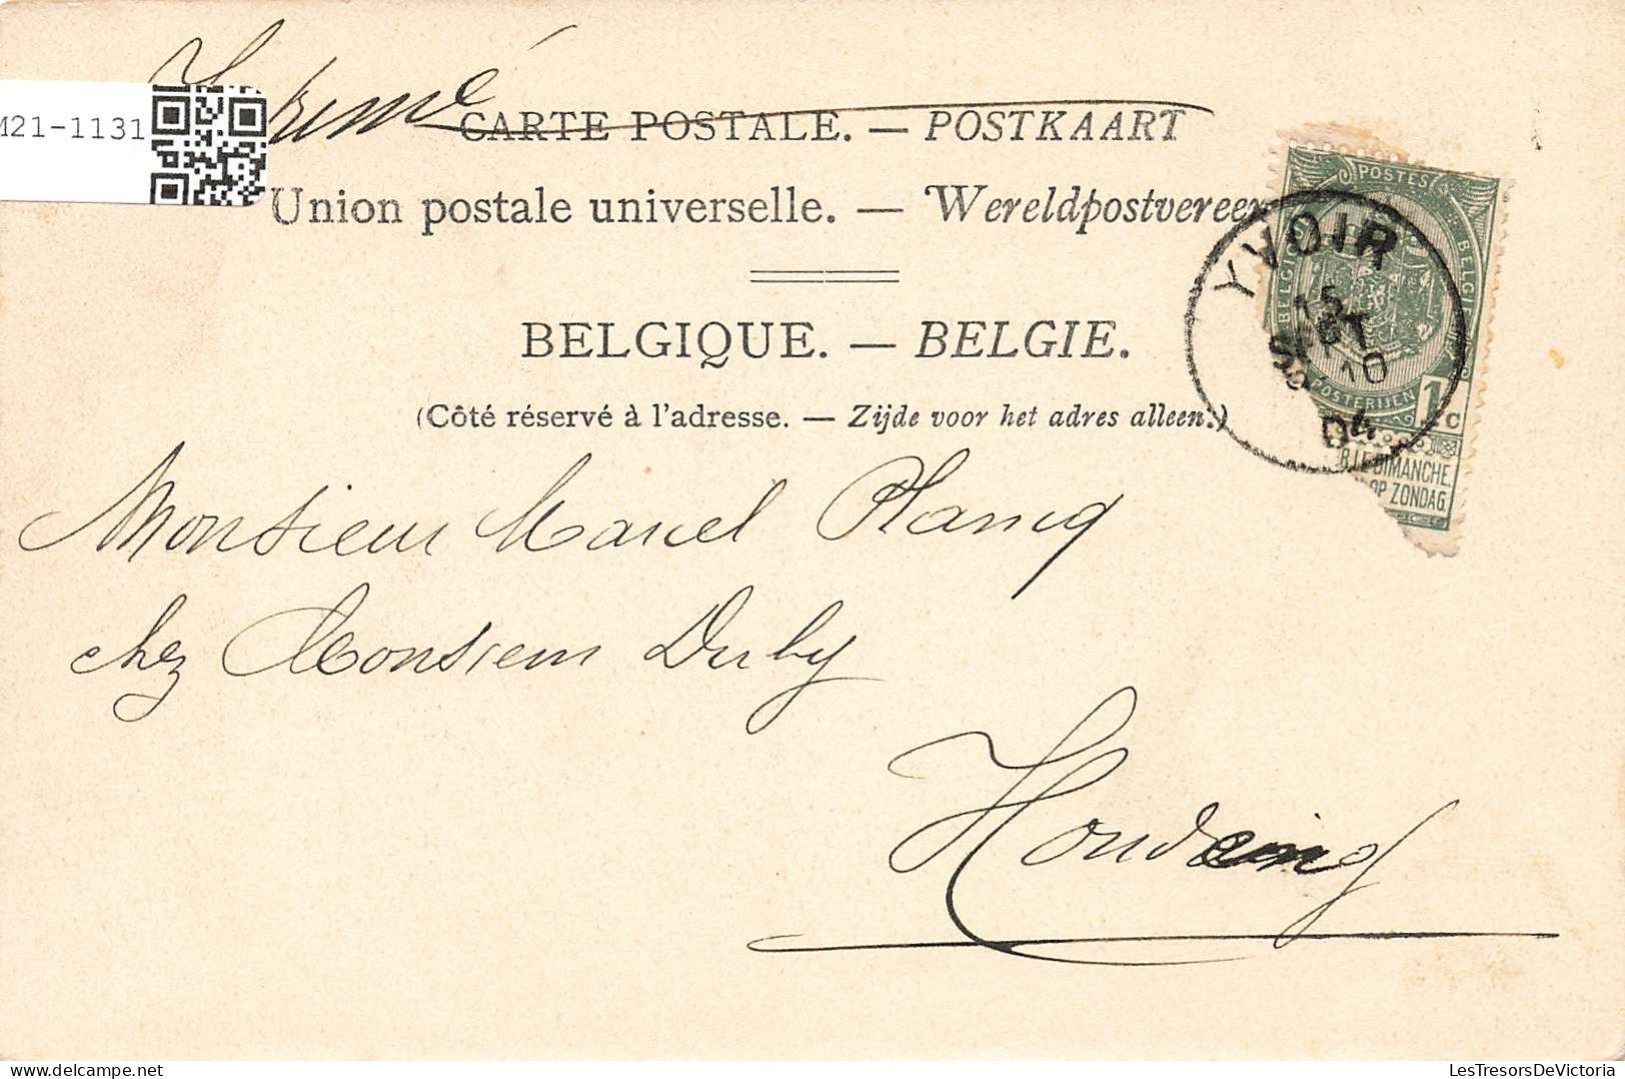 Imprimé
M21-1131
CARTE POSTALE. — POSTKAART
Union postale universelle. — Wereldpostvereen
BELGIQUE. — BELGIE.
(Côté réservé à l'adresse. — Zijde voor het adres alleen.)
POSTES
BELGIQUE BELGIE
POSTERIJEN
1 c
R LE DIMANCHE.
OP ZONDAG.
YVOIR
15
10
04
Monsieur Marcel Plancq
chez Monsieur Duby
Houdeng
LesTresorsDeVictoria